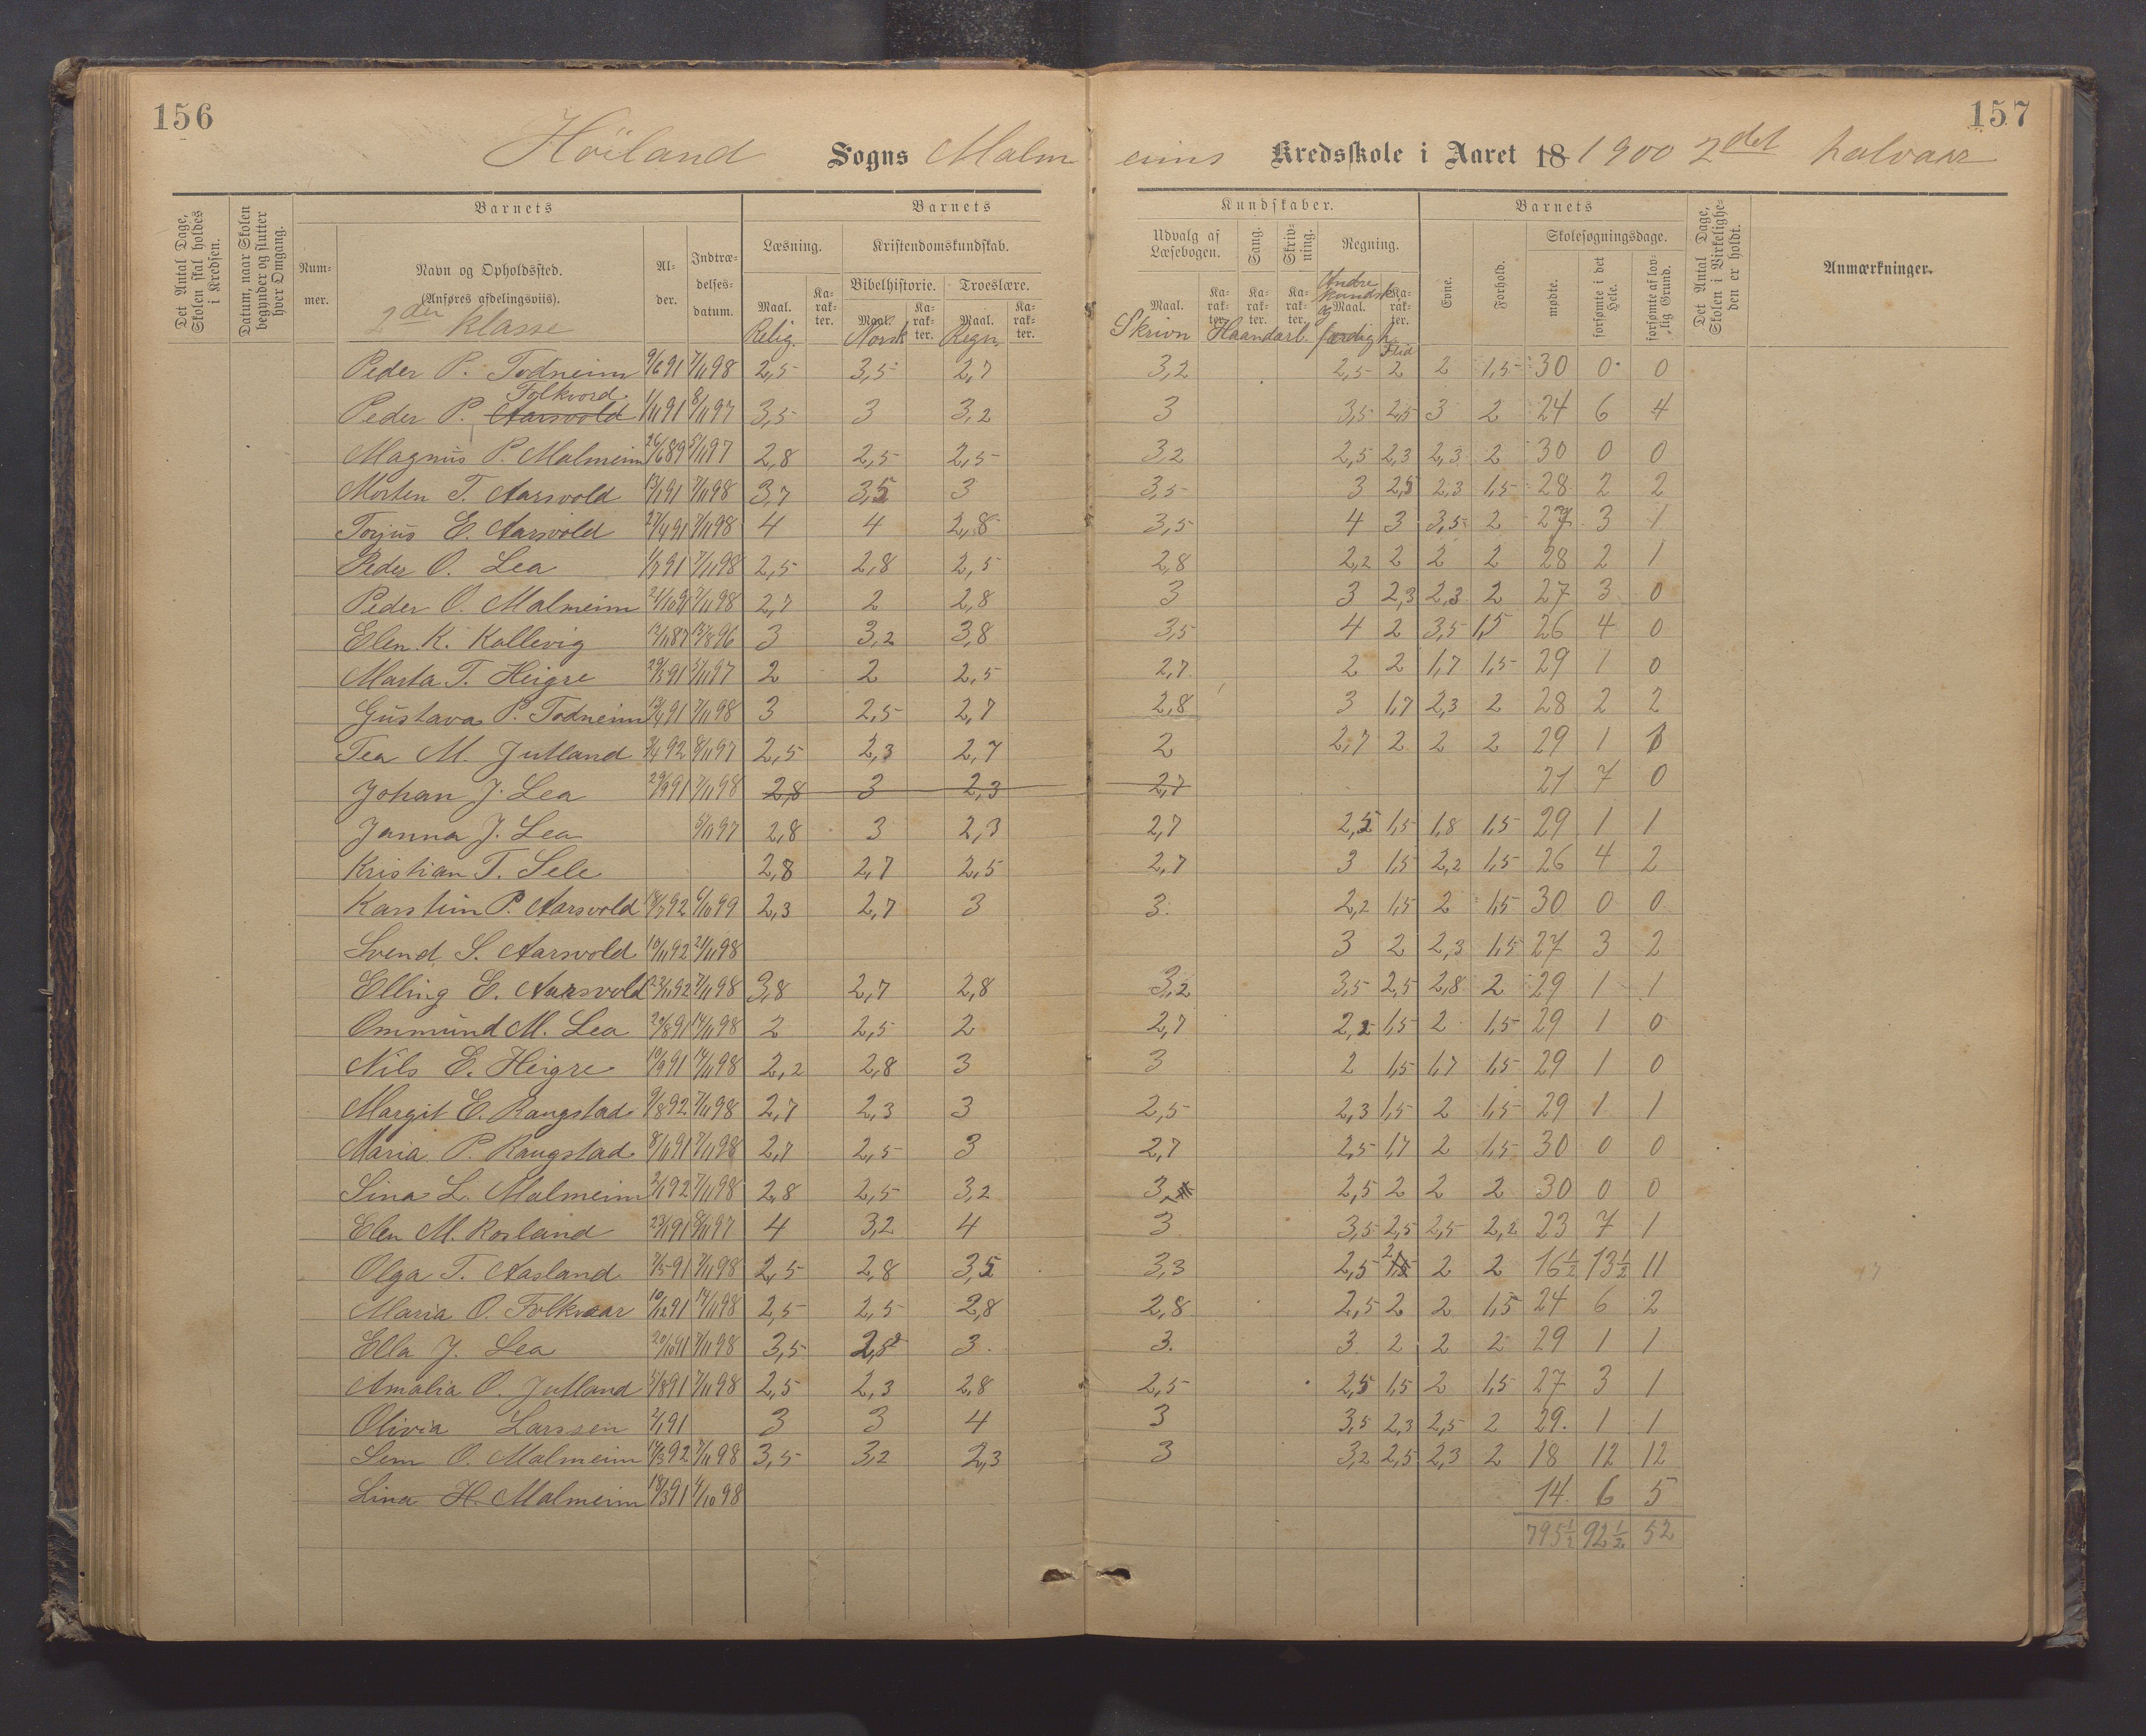 156
157
Höiland Sogns Malmeims Kredsskole i Aaret 18 1900 2det halvaar
Det Antal Dage, Skolen skal holdes i Kredsen.
Datum, naar Skolen begynder og slutter hver Omgang.
Barnets
Nummer.
Navn og Opholdssted. (Anføres afdelingsviis).
2den klasse
Alder.
Indtrædelsesdatum.
Barnets
Læsning.
Kristendomskundskab.
Bibelhistorie. Troeslære.
Maal. Karakter. Maal. Karakter. Maal. Karakter.
Relig. Norsk Regn.
Kundskaber.
Udvalg af Læsebogen. Sang. Skrivning. Regning.
Maal. Karakter. Karakter. Karakter. Maal. Karakter.
Skrivn Haandarb. Andre kundsk. og færdigh. Flid
Barnets
Evne. Forhold.
Skolesøgningsdage.
mødte. forsømte i det Hele. forsømte af lovlig Grund.
Det Antal Dage, Skolen i Virkeligheden er holdt.
Anmærkninger.
Peder P. Todneim 9/6 91 7/11 98 2,5 3,5 2,7 3,2 2,5 2 2 1,5 30 0 0
Folkvord
Peder P. Aarsvold 1/11 91 8/11 97 3,5 3 3,2 3 3,5 2,5 3 2 24 6 4
Magnus P. Malmeim 26/6 89 5/11 97 2,8 2,5 2,5 3,2 2,5 2,3 2,3 2 30 0 0
Morten T. Aarsvold 13/1 91 7/11 98 3,7 3,5 3 3,5 3 2,5 2,3 1,5 28 2 2
Torjus E. Aarsvold 27/4 91 7/11 98 4 4 2,8 3,5 4 3 3,5 2 27 3 1
Peder O. Lea 1/7 91 7/11 98 2,5 2,8 2,5 2,8 2,2 2 2 2 28 2 1
Peder O. Malmeim 21/10 91 7/11 98 2,7 2 2,8 3 3 2,3 2,3 2 27 3 0
Elen K. Kallevig 12/11 87 13/8 96 3 3,2 3,8 3,5 4 2 3,5 1,5 26 4 0
Marta T. Heigre 29/5 91 5/11 97 2 2 2,5 2,7 2 2 1,7 1,5 29 1 0
Gustava P. Todneim 13/4 91 7/11 98 3 2,5 2,7 2,8 3 1,7 2,3 2 28 2 2
Tea M. Jutland 3/4 92 8/11 97 2,5 2,3 2,7 2 2,7 2 2 2 29 1 1
Johan J. Lea 29/9 91 7/11 98 2,8 3 2,3 2,7 21 7 0
Janna J. Lea 5/11 97 2,8 3 2,3 2,7 2,5 1,5 1,8 1,5 29 1 1
Kristian T. Sele 2,8 2,7 2,5 2,7 3 1,5 2,2 1,5 26 4 2
Karsteim P. Aarsvold 18/7 92 6/10 99 2,3 2,7 3 3 2,2 1,5 2 1,5 30 0 0
Svend S. Aarsvold 10/11 92 21/11 98 3 2 2,3 1,5 27 3 2
Elling E. Aarsvold 23/11 92 7/11 98 3,8 2,7 2,8 3,2 3,5 2,5 2,8 2 29 1 1
Ommund M. Lea 20/8 91 14/11 98 2 2,5 2 2,7 2,2 1,5 2 1,5 29 1 0
Nils E. Heigre 10/9 91 14/11 98 2,2 2,8 3 3 2 1,5 1,7 1,5 29 1 0
Margit E. Rangstad 9/8 92 7/11 98 2,7 2,3 3 2,5 2,3 1,5 2 1,5 29 1 1
Maria P. Rangstad 8/11 91 7/11 98 2,7 2,5 3 2,7 2,5 1,7 2 1,5 30 0 0
Sina L. Malmeim 2/1 92 7/11 98 2,8 2,5 3,2 3 2,5 2 2 2 30 0 0
Elen M. Rosland 23/1 91 8/11 97 4 3,2 4 3 3,5 2,5 2,5 2,2 23 7 1
Olga T. Aasland 7/5 91 7/11 98 2,5 2,8 3,5 3,3 2,5 2 2 2 16½ 13½ 11
Maria O. Folkvaar 10/12 91 14/11 98 2,5 2,5 2,8 2,8 2,5 2 2 1,5 24 6 2
Ella J. Lea 20/10 91 7/11 98 3,5 2,8 3 3 3 2 2 2 29 1 1
Amalia O. Jutland 5/8 91 7/11 98 2,5 2,3 2,8 2,5 2,5 1,5 2 1,5 27 3 1
Olivia Larssen 2/1 91 3 3 4 3 3,5 2,3 2,5 2 29 1 1
Sem O. Malmeim 17/3 92 7/11 98 3,5 3,2 2,3 3 3,2 2,5 2,3 2 18 12 12
Lina H. Malmeim 18/3 91 4/10 98 14 6 5
795½ 92½ 52